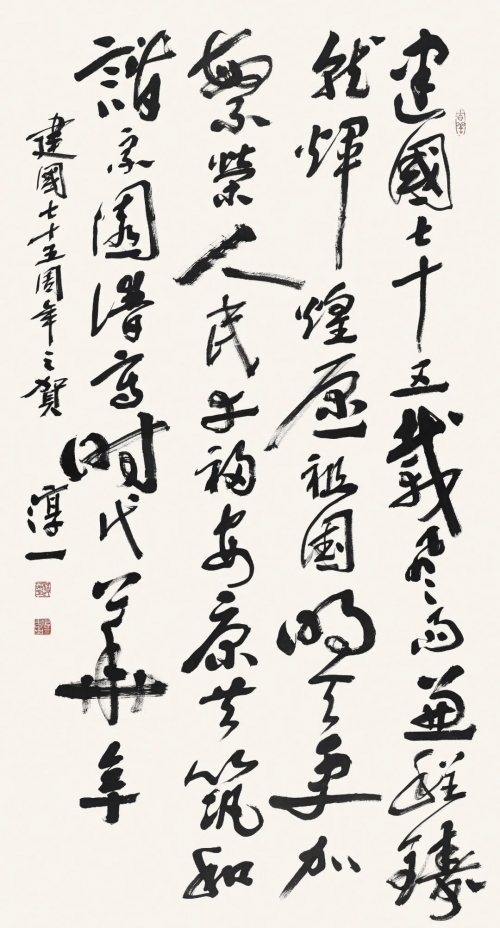 建國七十五載風雨兼程鑄
就輝煌愿祖国明天更加
繁榮人民幸福安康共築和
諧家園譜寫時代華章
建國七十五周年之賀
淳一